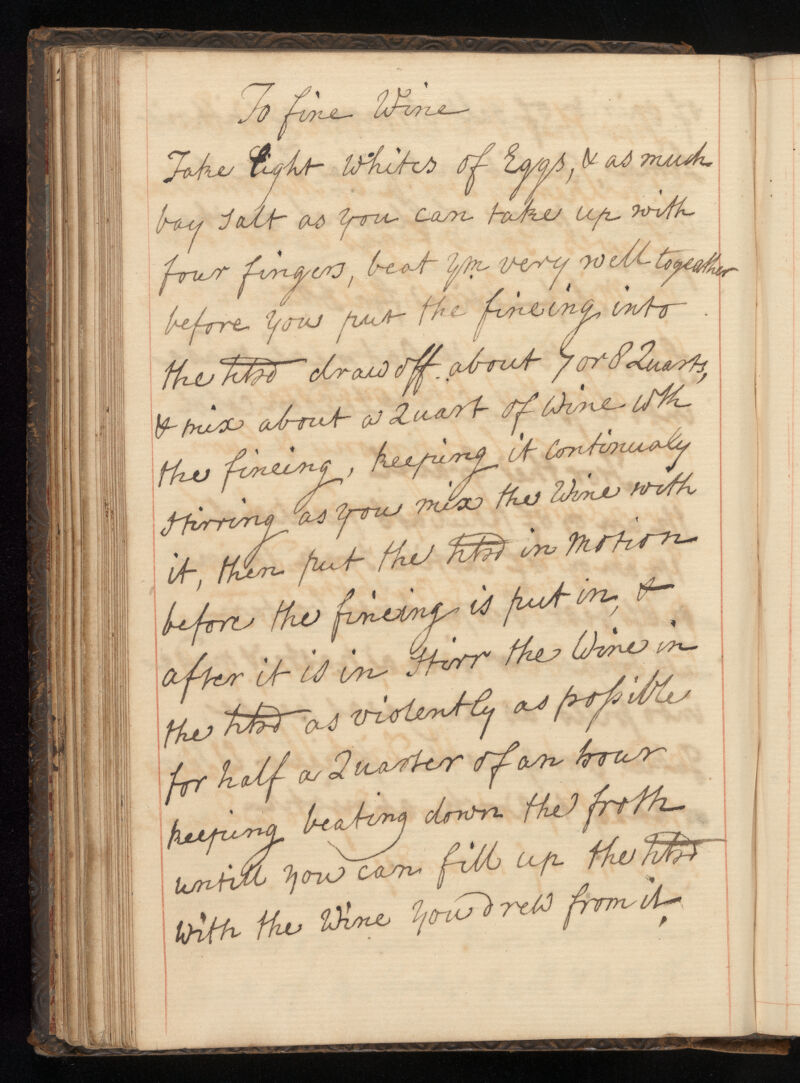 To fine Wine
Take Eight Whites of Eggs, & as much
bay Salt as you can take up with
four fingers, beat ym very well togeather
before you put the fineing into
the hhd draw off about 7 or 8 Quarts,
& mix about a Quart of Wine wth
the fineing, keeping it Continualy
stirring as you mix the Wine with
it, then put the hhd in Motion
before the fineing is put in, &
after it is in Stirr the Wine in
the hhd as violently as possible
for half a Quarter of an hour
keeping beating down the froth
untill you can fill up the hhd
With the Wine you drew from it,